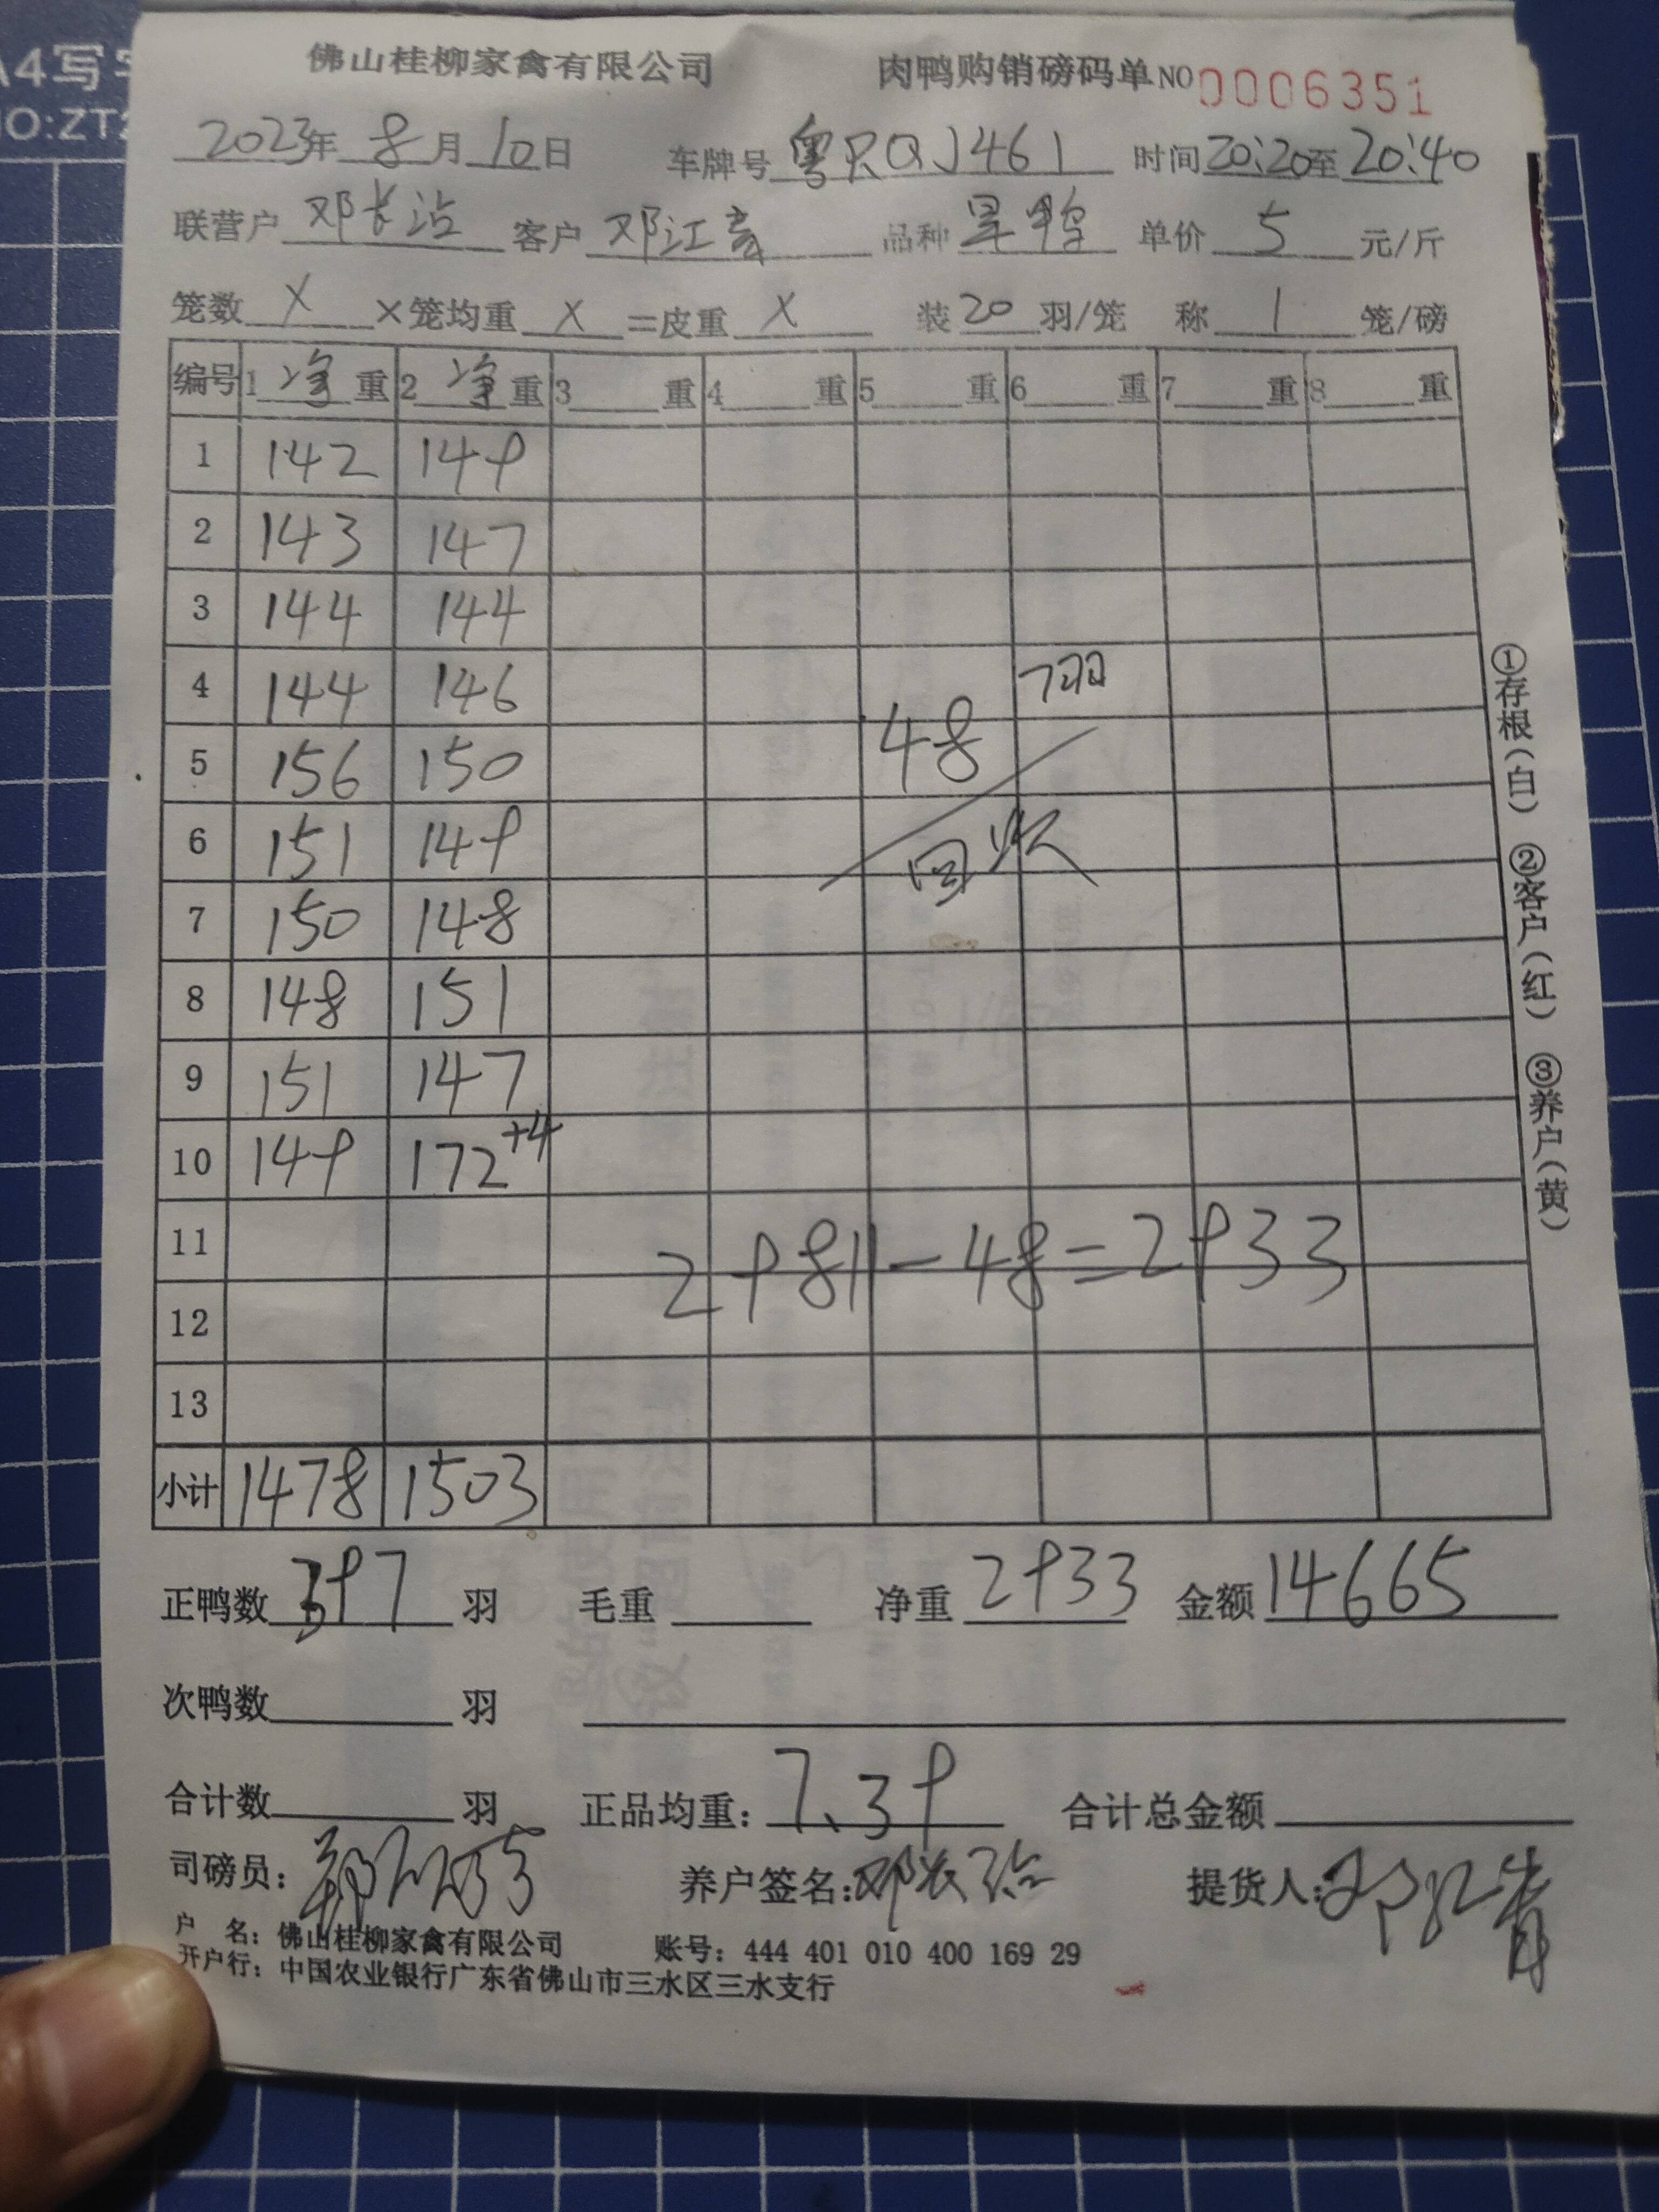 A4写字
NO:ZT2
佛山桂柳家禽有限公司 肉鸭购销磅码单NO 0006351
2023年 8月 10日 车牌号 粤RQJ461 时间20:20至20:40
联营户 邓长治 客户 邓江 品种 旱鸭 单价 5 元/斤
笼数 X ×笼均重 X =皮重 X 装 20 羽/笼 称 1 笼/磅
编号 1 净 重 2 净 重 3 重 4 重 5 重 6 重 7 重 8 重
1 142 149
2 143 147
3 144 144
4 144 146 7羽
5 156 150 48
6 151 149 回收
7 150 148
8 148 151
9 151 147
10 149 172+4
11 2981-48=2933
12
13
小计 1478 1503
①存根(白) ②客户(红) ③养户(黄)
正鸭数 397 羽 毛重 净重 2933 金额 14665
次鸭数 羽
合计数 羽 正品均重: 7.39 合计总金额
司磅员: 养户签名:邓长治 提货人:邓江青
户 名: 佛山桂柳家禽有限公司 账号: 444 401 010 400 169 29
开户行: 中国农业银行广东省佛山市三水区三水支行